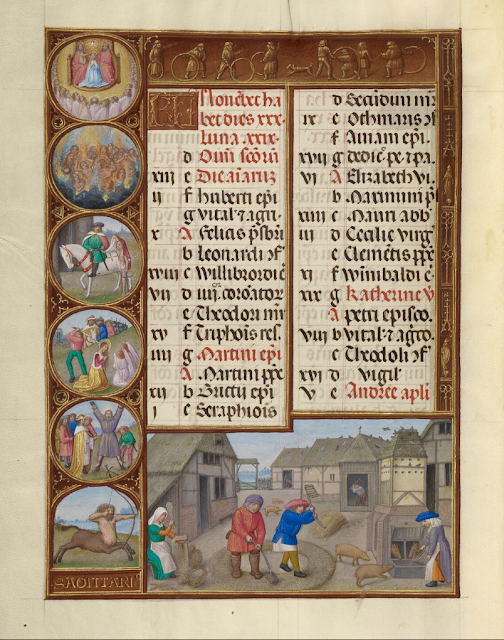 KL
bet dies xxx.
Luna .xxix.
d Oīm scōrū
xiii e Die aīarū
ii f huberti epi
g vital & agri.
x A Felicis pſbri
b Leonardi ɔf
xviii c willibrordi c
vii d iiij. coronator
e Theodori mr
xv f Triphonis res.
iiii g Martini epi
A Martini ppe
xii b Brictii epi
i c Seraphiois
d Secūdum mr
ix e Othmaris ɔf
f Aniam epi.
xvii g dedic. pe. ꝛ pa.
vi A Elizabeth vi.
b Maximini p
xiiii c Mauri abb
iii d Cecilie virg
e Clemētis ppe
xi f winibaldi c
xix g Katherine v
A petri episco.
viii b vital & agrco.
c Theodoli ɔf
xvi d vigil
v e Andree apli
SAGITTARI